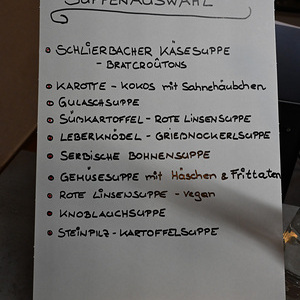 SUPPENAUSWAHL
SCHLIERBACHER KÄSESUPPE
- BRATCROÛTONS
KAROTTE - KOKOS mit Sahnehäubchen
GULASCHSUPPE
SÜßKARTOFFEL - ROTE LINSENSUPPE
LEBERKNÖDEL - GRIEßNOCKERLSUPPE
SERBISCHE BOHNENSUPPE
GEMÜSESUPPE mit Häschen & Frittaten
ROTE LINSENSUPPE - vegan
KNOBLAUCHSUPPE
STEINPILZ - KARTOFFELSUPPE